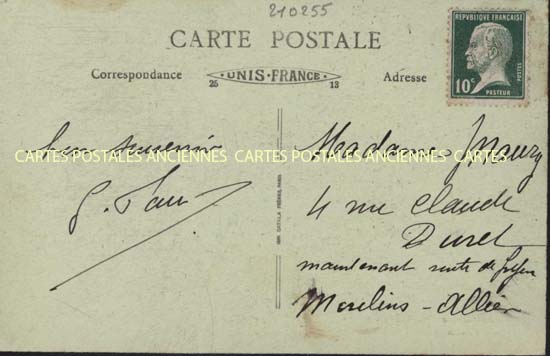 210255
CARTE POSTALE
Correspondance
25 UNIS-FRANCE 13
Adresse
REPUBLIQUE FRANÇAISE
POSTES
10c
PASTEUR
CARTES POSTALES ANCIENNES CARTES POSTALES ANCIENNES CARTES
bon souvenir
Madame Maury
4 rue Claude
Duret
maintenant route de
Moulins - Allier